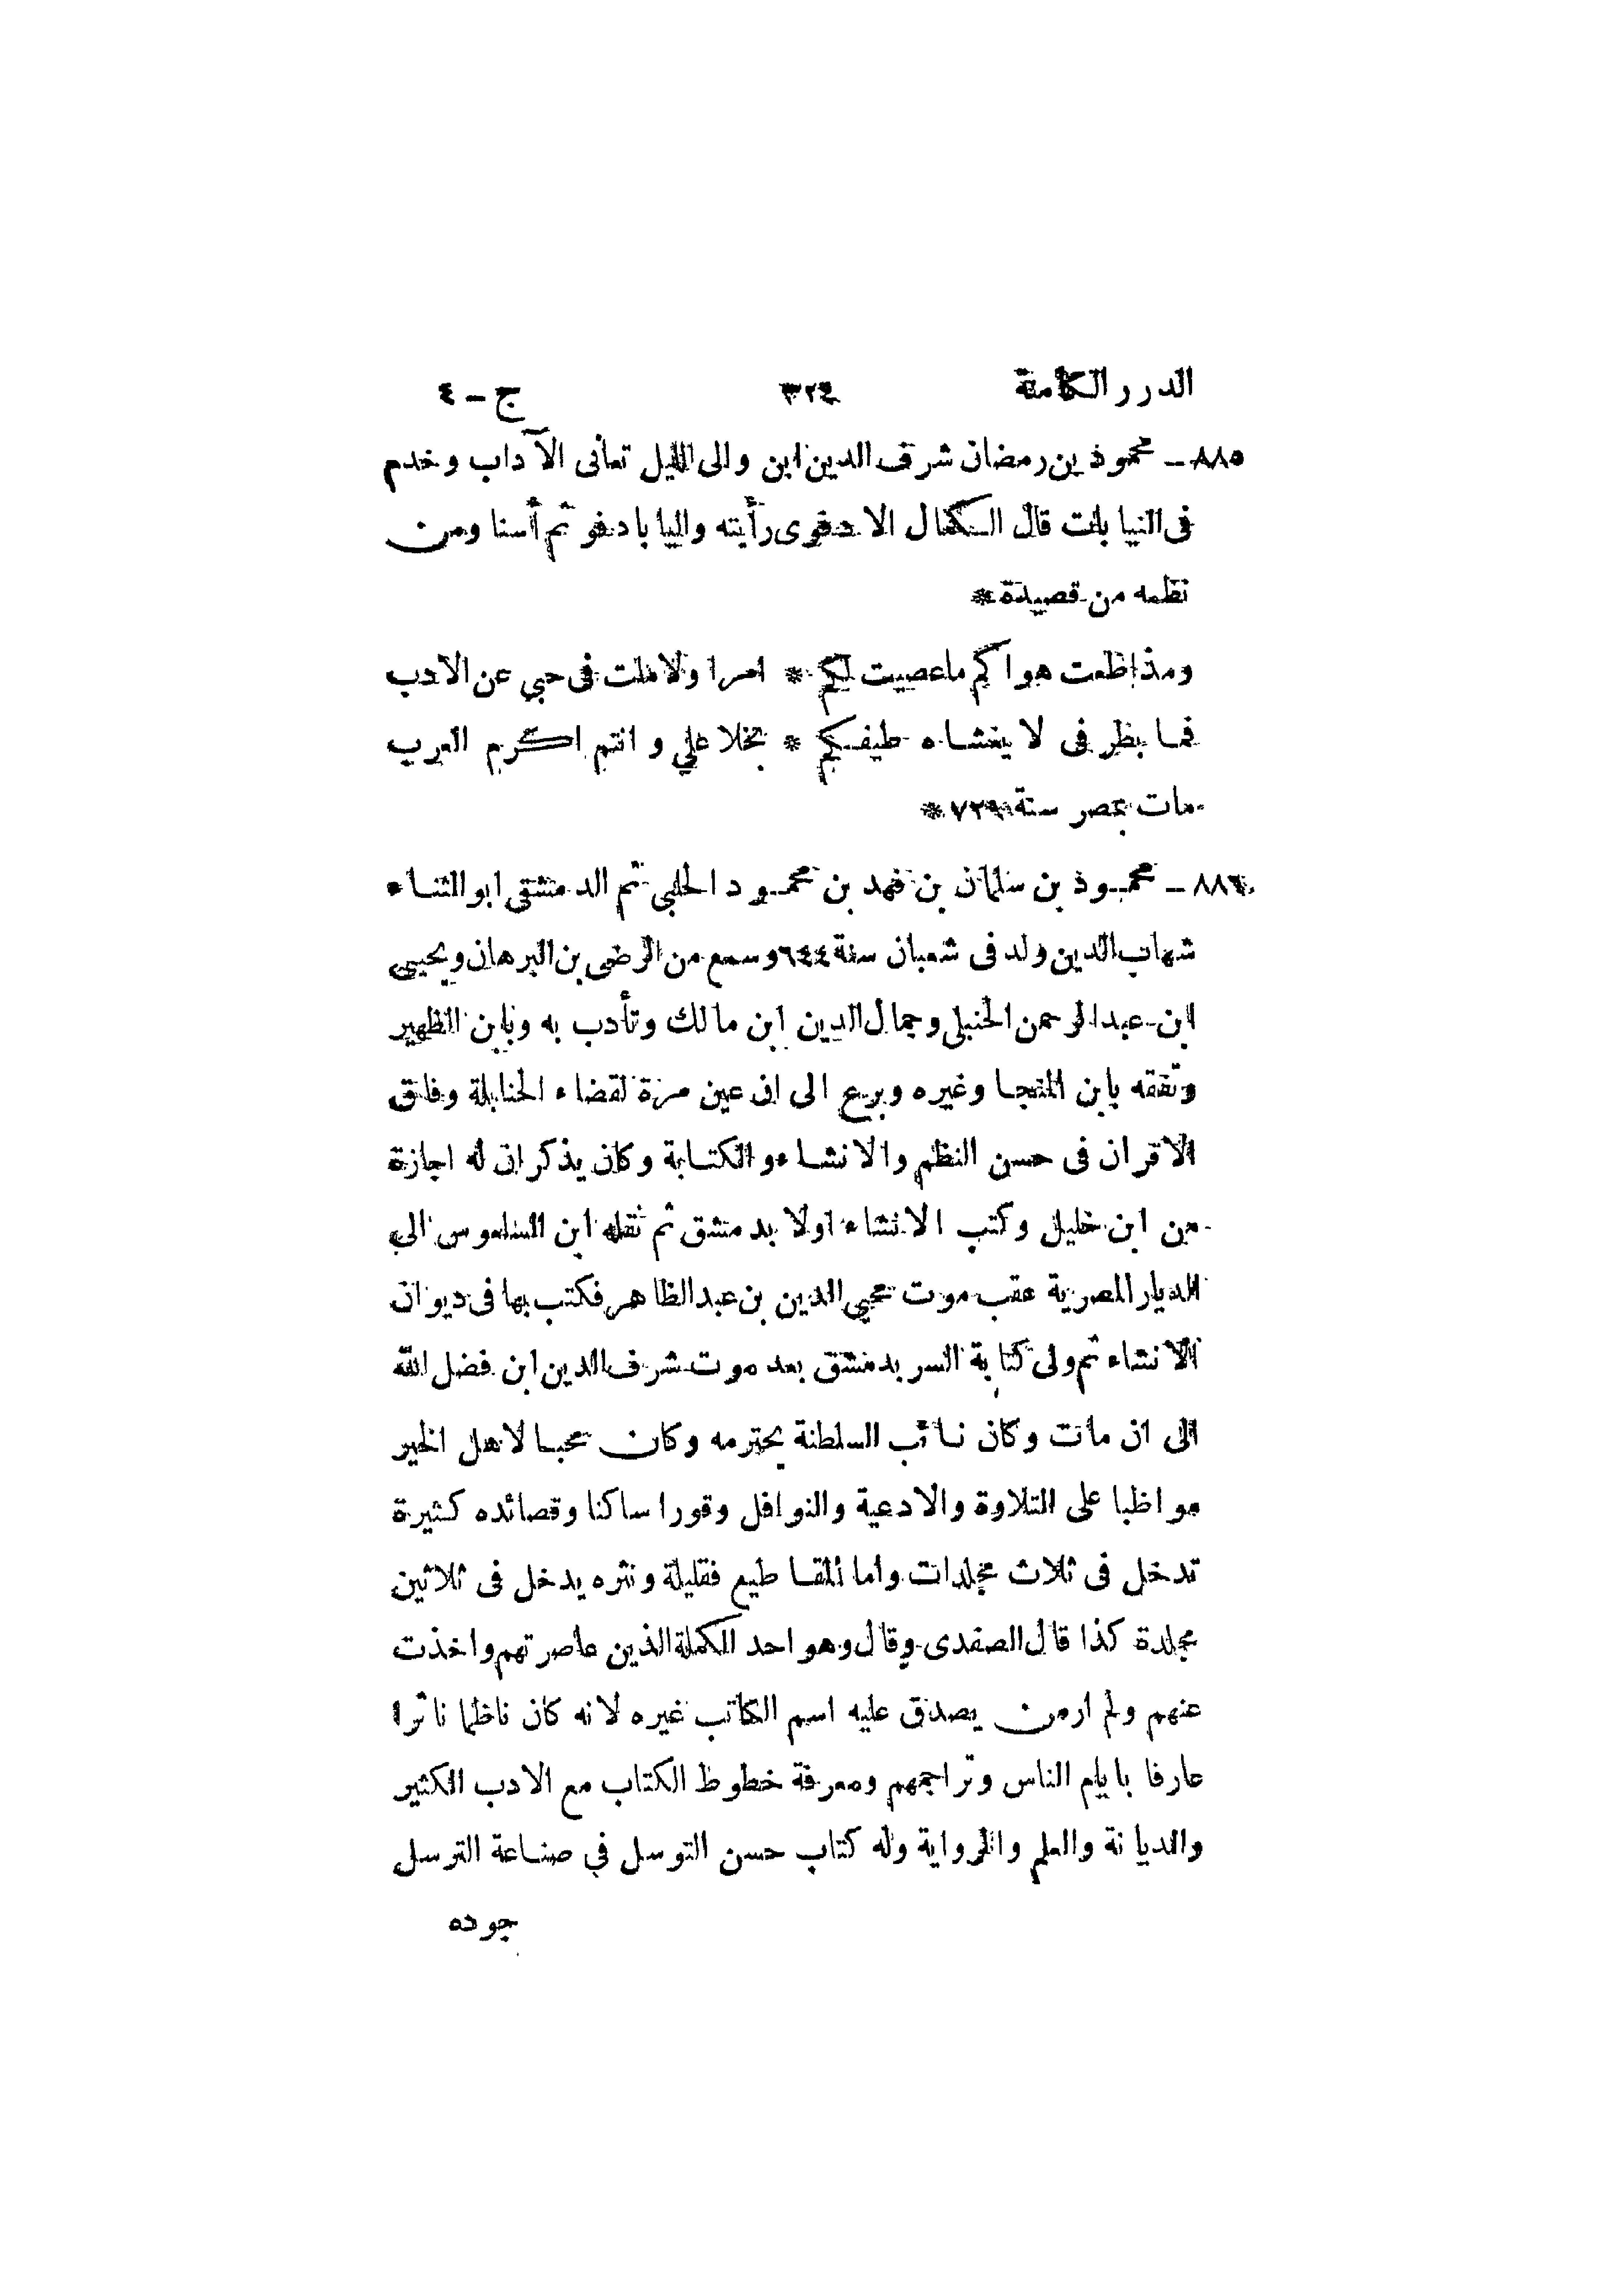 الدرر الكامنة ٣٢٤ ج - ٤
٨٨٥ - محمود بن رمضان شرف الدين ابن والى الليل تعانى الآداب وخدم
فى النيابات قال الكمال الادفوى رأيته واليا بادفو ثم أسنا ومن
نظمه من قصيدة *
ومذ اطعت هواكم ماعصيت لكم * امرا ولا ملت فى حبي عن الادب
فما بطرفى لا يغشاه طيفكم * بخلا علي وانتم اكرم العرب
مات بمصر سنة ٧٢٩ *
٨٨٦ - محمود بن سلمان بن فهد بن محمود الحلبى ثم الدمشقى ابو الثناء
شهاب الدين ولد فى شعبان سنة ٦٤٤ وسمع من الرضى بن البرهان ويحيى
ابن عبدالرحمن الحنبلى وجمال الدين ابن مالك وتأدب به وبابن الظهير
وتفقه بابن المنجا وغيره وبرع الى ان عين مرة لقضاء الحنابلة وفاق
الاقران فى حسن النظم والانشاء والكتابة وكان يذكر ان له اجازة
من ابن خليل وكتب الانشاء اولا بدمشق ثم نقله ابن السلعوس الى
الديار المصرية عقب موت محيي الدين بن عبدالظاهر فكتب بها فى ديوان
الانشاء ثم ولى كتابة السر بدمشق بعد موت شرف الدين ابن فضل الله
الى ان مات وكان نائب السلطنة يحترمه وكان محبا لاهل الخير
مواظبا على التلاوة والادعية والنوافل وقورا ساكنا وقصائده كثيرة
تدخل فى ثلاث مجلدات واما المقاطيع فقليلة ونثره يدخل فى ثلاثين
مجلدة كذا قال الصفدى وقال وهو احد الكملة الذين عاصرتهم واخذت
عنهم ولم ار من يصدق عليه اسم الكاتب غيره لانه كان ناظما ناثرا
عارفا بايام الناس وتراجمهم ومعرفة خطوط الكتاب مع الادب الكثير
والديانة والعلم والرواية وله كتاب حسن التوسل في صناعة الترسل
جوده